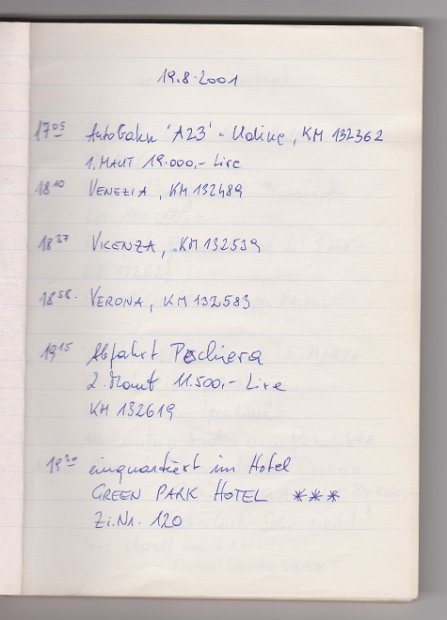 19.8.2001
17 05 Autobahn 'A23' - Udine, KM 132362
1. MAUT 19.000,- Lire
18 10 VENEZIA, KM 132489
18 37 VICENZA, KM 132539
18 58. VERONA, KM 132583
19 15 Abfahrt Peschiera
2. Maut 11.500,- Lire
KM 132619
19 30 einquartiert im Hotel
GREEN PARK HOTEL ***
Zi.Nr. 120